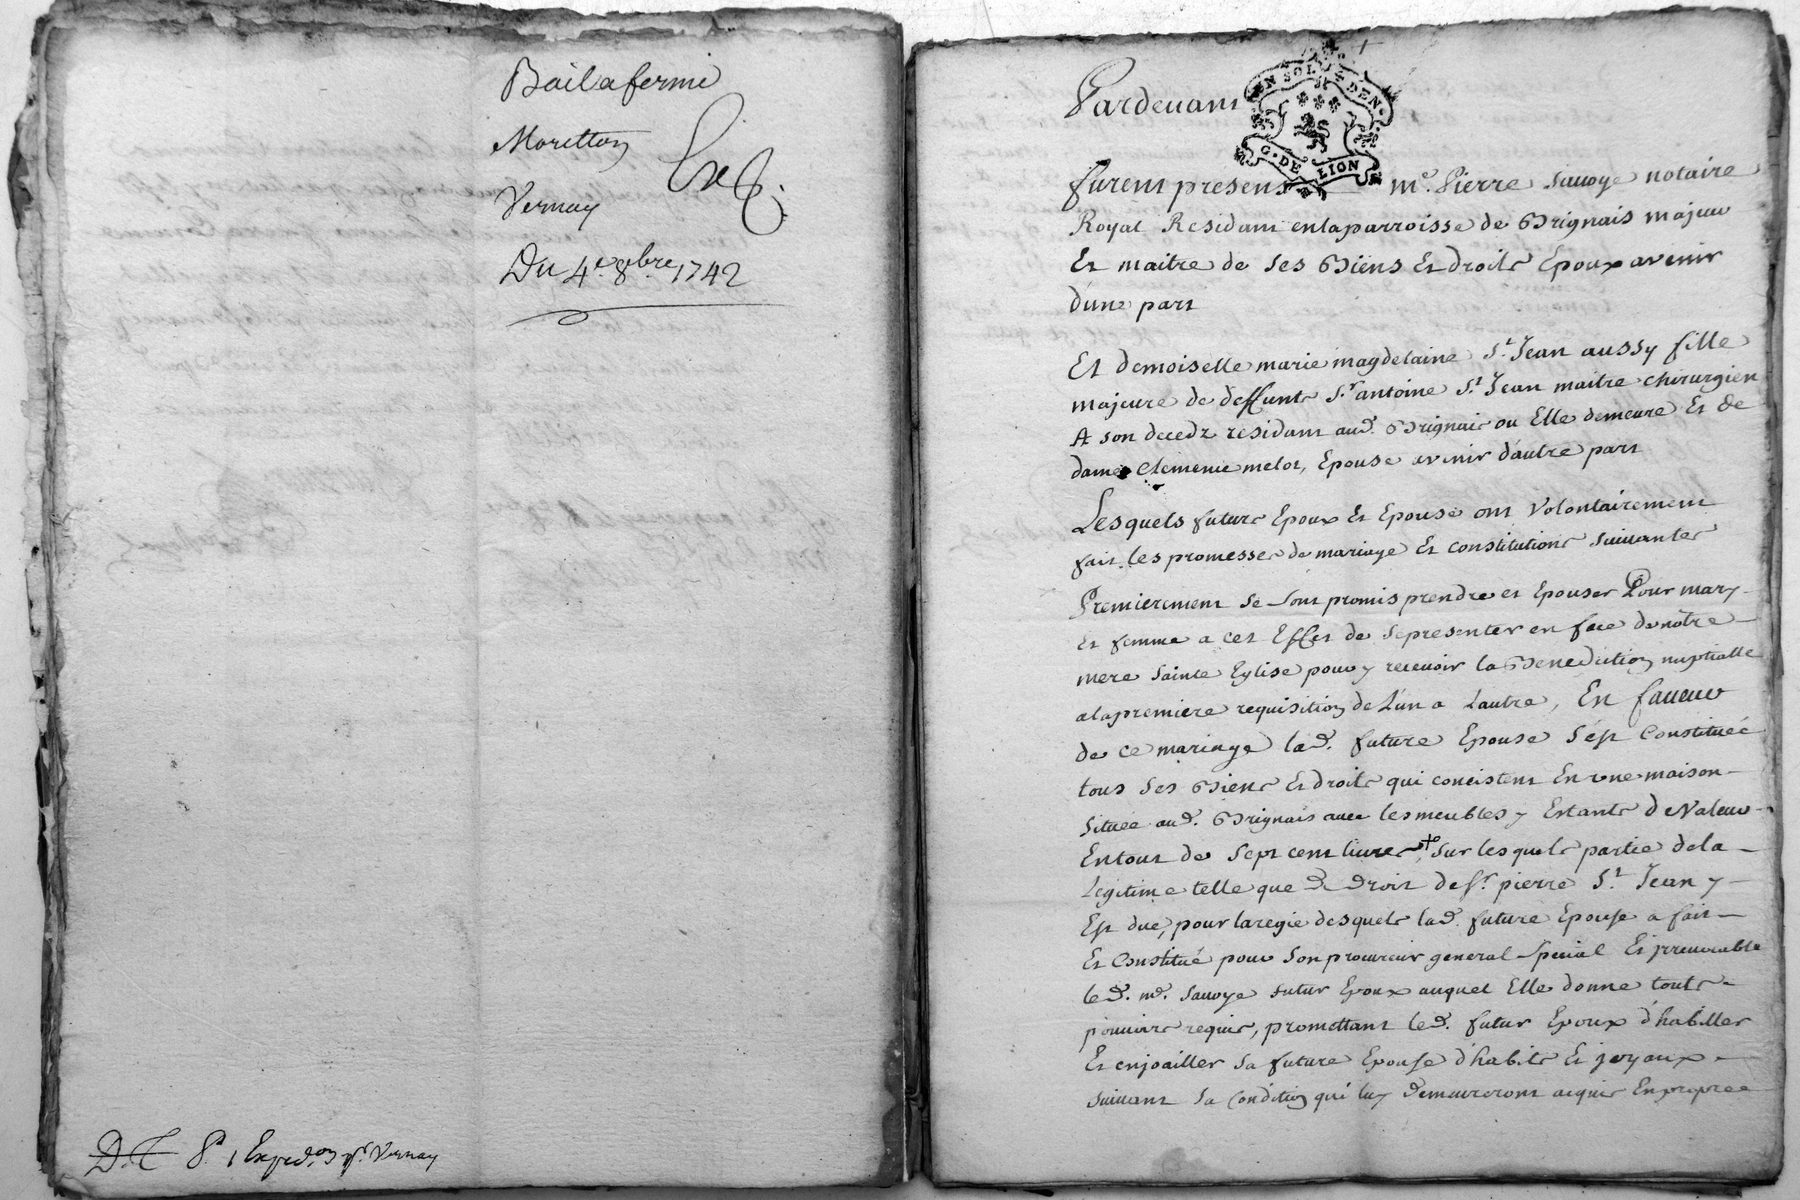 Bail a ferme
Moretton
Vernay
Du 4e 8bre 1742
D.T. 8s 1 Exped.on pr. Vernay
Pardevant
EN SOL DEN.
G. DE LION
furent presens me. Pierre sauoye notaire
Royal Residant en la parroisse de Brignais majeur
Et maitre de ses Biens Et droits Epoux avenir
d'une part
Et demoiselle marie magdelaine St. Jean aussy fille
majeure de deffunt Sr. antoine St. Jean maitre chirurgien
A son decedz residant aud. Brignais ou Elle demeure Et de
dame Clemence melot, Epouse avenir d'autre part
Lesquels futurs Epoux Et Epouse ont Volontairement
fait les promesses de mariage Et constitutions suiuantes
Premierement se sont promis prendre et Epouser Pour mary
et femme a cet Effet de se presenter en face de nôtre
mere sainte Eglise pour y receuoir la Benediction nuptialle
a la premiere requisition de L'un a Lautre, En faueur
de ce mariage lad. future Epouse s'est Constituée
tous ses Biens Et droits qui concistent En une maison
située aud. Brignais auec les meubles y Estants de Valeur
En tout de sept cent liures + sur lesquels partie de la
Legitime telle que de droit de sr. pierre St. Jean y
Est due, pour la regie desquels lad. future Epouse a fait
Et Constitué pour son procureur general special Et jrreuocable
led. me. sauoye futur Epoux auquel Elle donne touts
pouuoirs requis, promettant led. futur Epoux d'habiller
Et enjoailler sa future Epouse d'habits Et joyaux
suiuant sa Condition qui luy demeureront acquis En propre